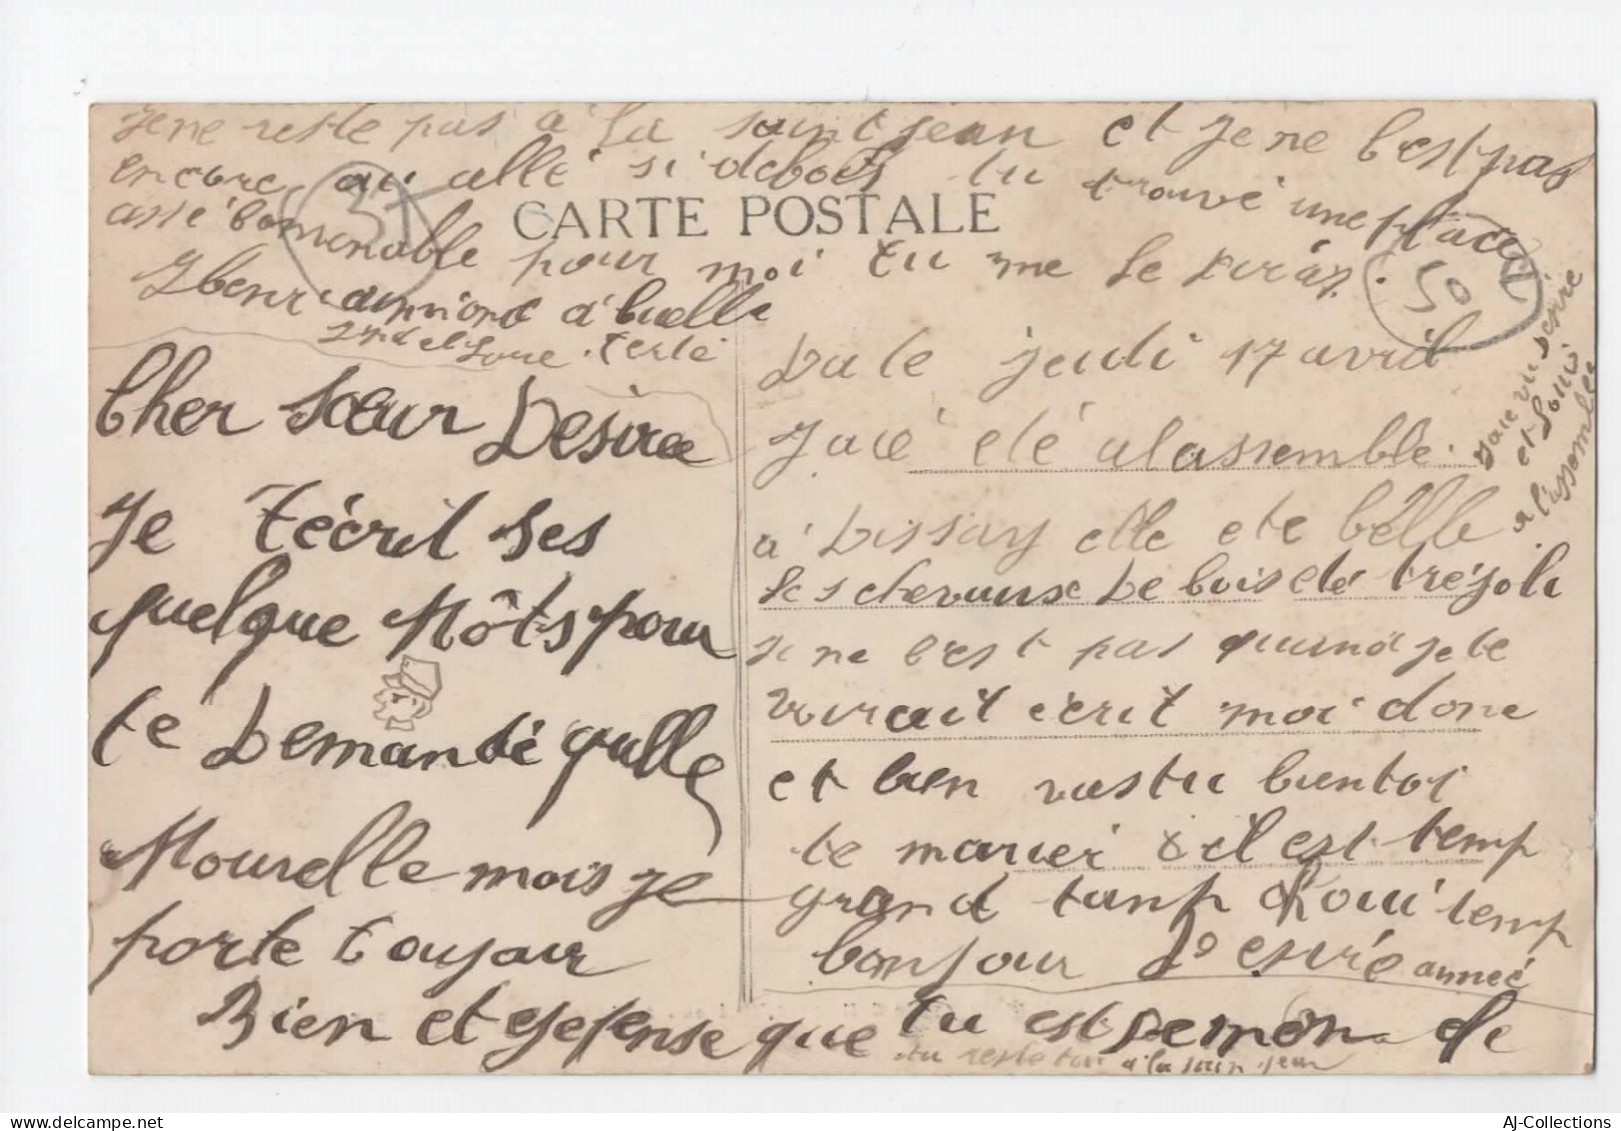 Je ne reste pas a la saint jean et je ne c'est pas
encore au allé si debois tu trouve une place
asse bonvenable pour moi tu me le diras.
henri
a
et Loire
CARTE POSTALE
37
50
Cher sœur Desirée
Je t'écril ses
quelque Môts pour
te Demandé qulle
Nourelle mois je
porte toujour
Bien et je pense que tu est De mon de
tu reste toi a la sain jean
Da le jeudi 17 avril
J ae été a lassemble
a Dissay elle ete belle
les chevause De bois eté tré joli
je ne c'est pas quand je te
voirait ecrit moi donc
et bien vastu bientot
te marier il est temp
grand tanp Loui temp
bonjour Desirée anneé
J'aie vu
et Loui
a l'assemblee
AJ-Collections